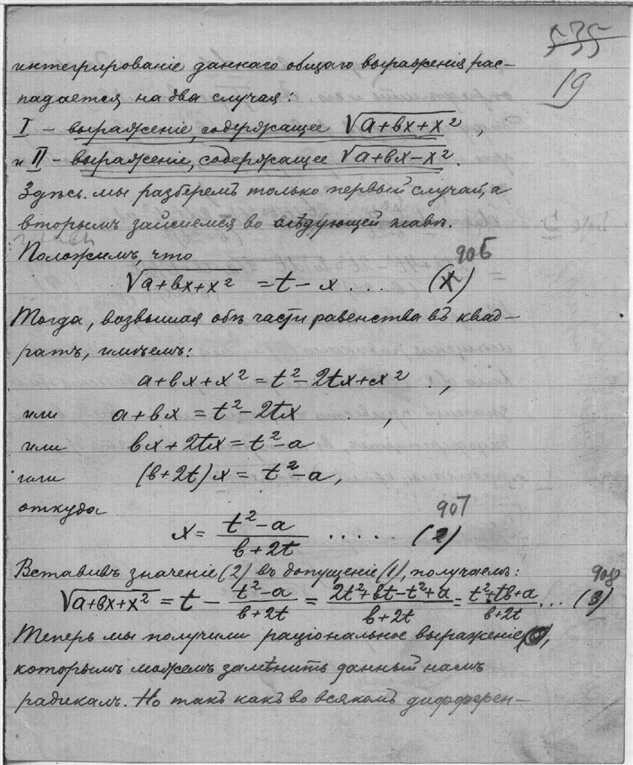 535
19
интегрированіе даннаго общаго выраженія рас-
падается на два случая:
I – выраженіе, содержащее √a+bx+x² ,
и II – выраженіе, содержащее √a+bx-x².
Здѣсь мы разберемъ только первый случай, а
вторымъ займемся во слѣдующей главѣ.
Положимъ, что
906
√a+bx+x² = t - x ... (1)
Тогда, возвышая обѣ части равенства въ квад-
ратъ, имѣемъ:
a+bx+x² = t²-2tx+x² ,
или a+bx = t²-2tx ,
или bx+2tx = t²-a
или (b+2t)x = t²-a,
откуда
907
x = (t²-a)/(b+2t) ..... (2)
Вставивъ значеніе (2) въ допущеніе (1), получаемъ:
908
√a+bx+x² = t - (t²-a)/(b+2t) = (2t²+bt-t²+a)/(b+2t) = (t²+tb+a)/(b+2t) ... (3)
Теперь мы получили раціональное выраженіе,
которымъ можемъ замѣнить данный намъ
радикалъ. Но такъ какъ во всякомъ дифферен-